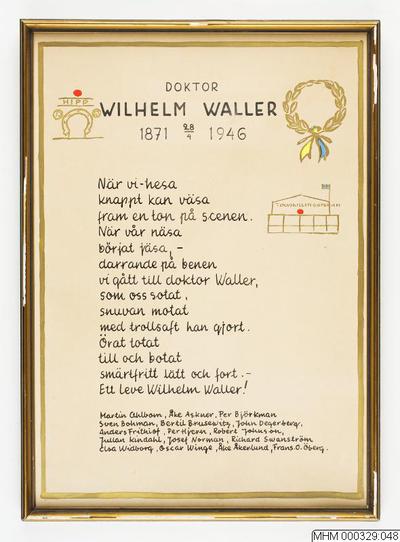 DOKTOR
HIPP
WILHELM WALLER
1871 28/4 1946
När vi hesa
knappt kan väsa
fram en ton på scenen.
När vår näsa
börjat jäsa, -
darrande på benen
vi gått till doktor Waller,
som oss sotat,
snuvan motat
med trollsaft han gjort.
Örat totat
till och botat
smärtfritt lätt och fort. -
Ett leve Wilhelm Waller!
Martin Ahlbom, Åke Askner, Per Björkman
Sven Bohman, Bertil Brusewitz, John Degerberg,
Anders Frithiof, Per Hjern, Robert Johnson,
Julian Kindahl, Josef Norman, Richard Swanström
Elsa Widborg, Oscar Winge, Åke Åkerlund, Frans O. Öberg.
MHM 000329:048